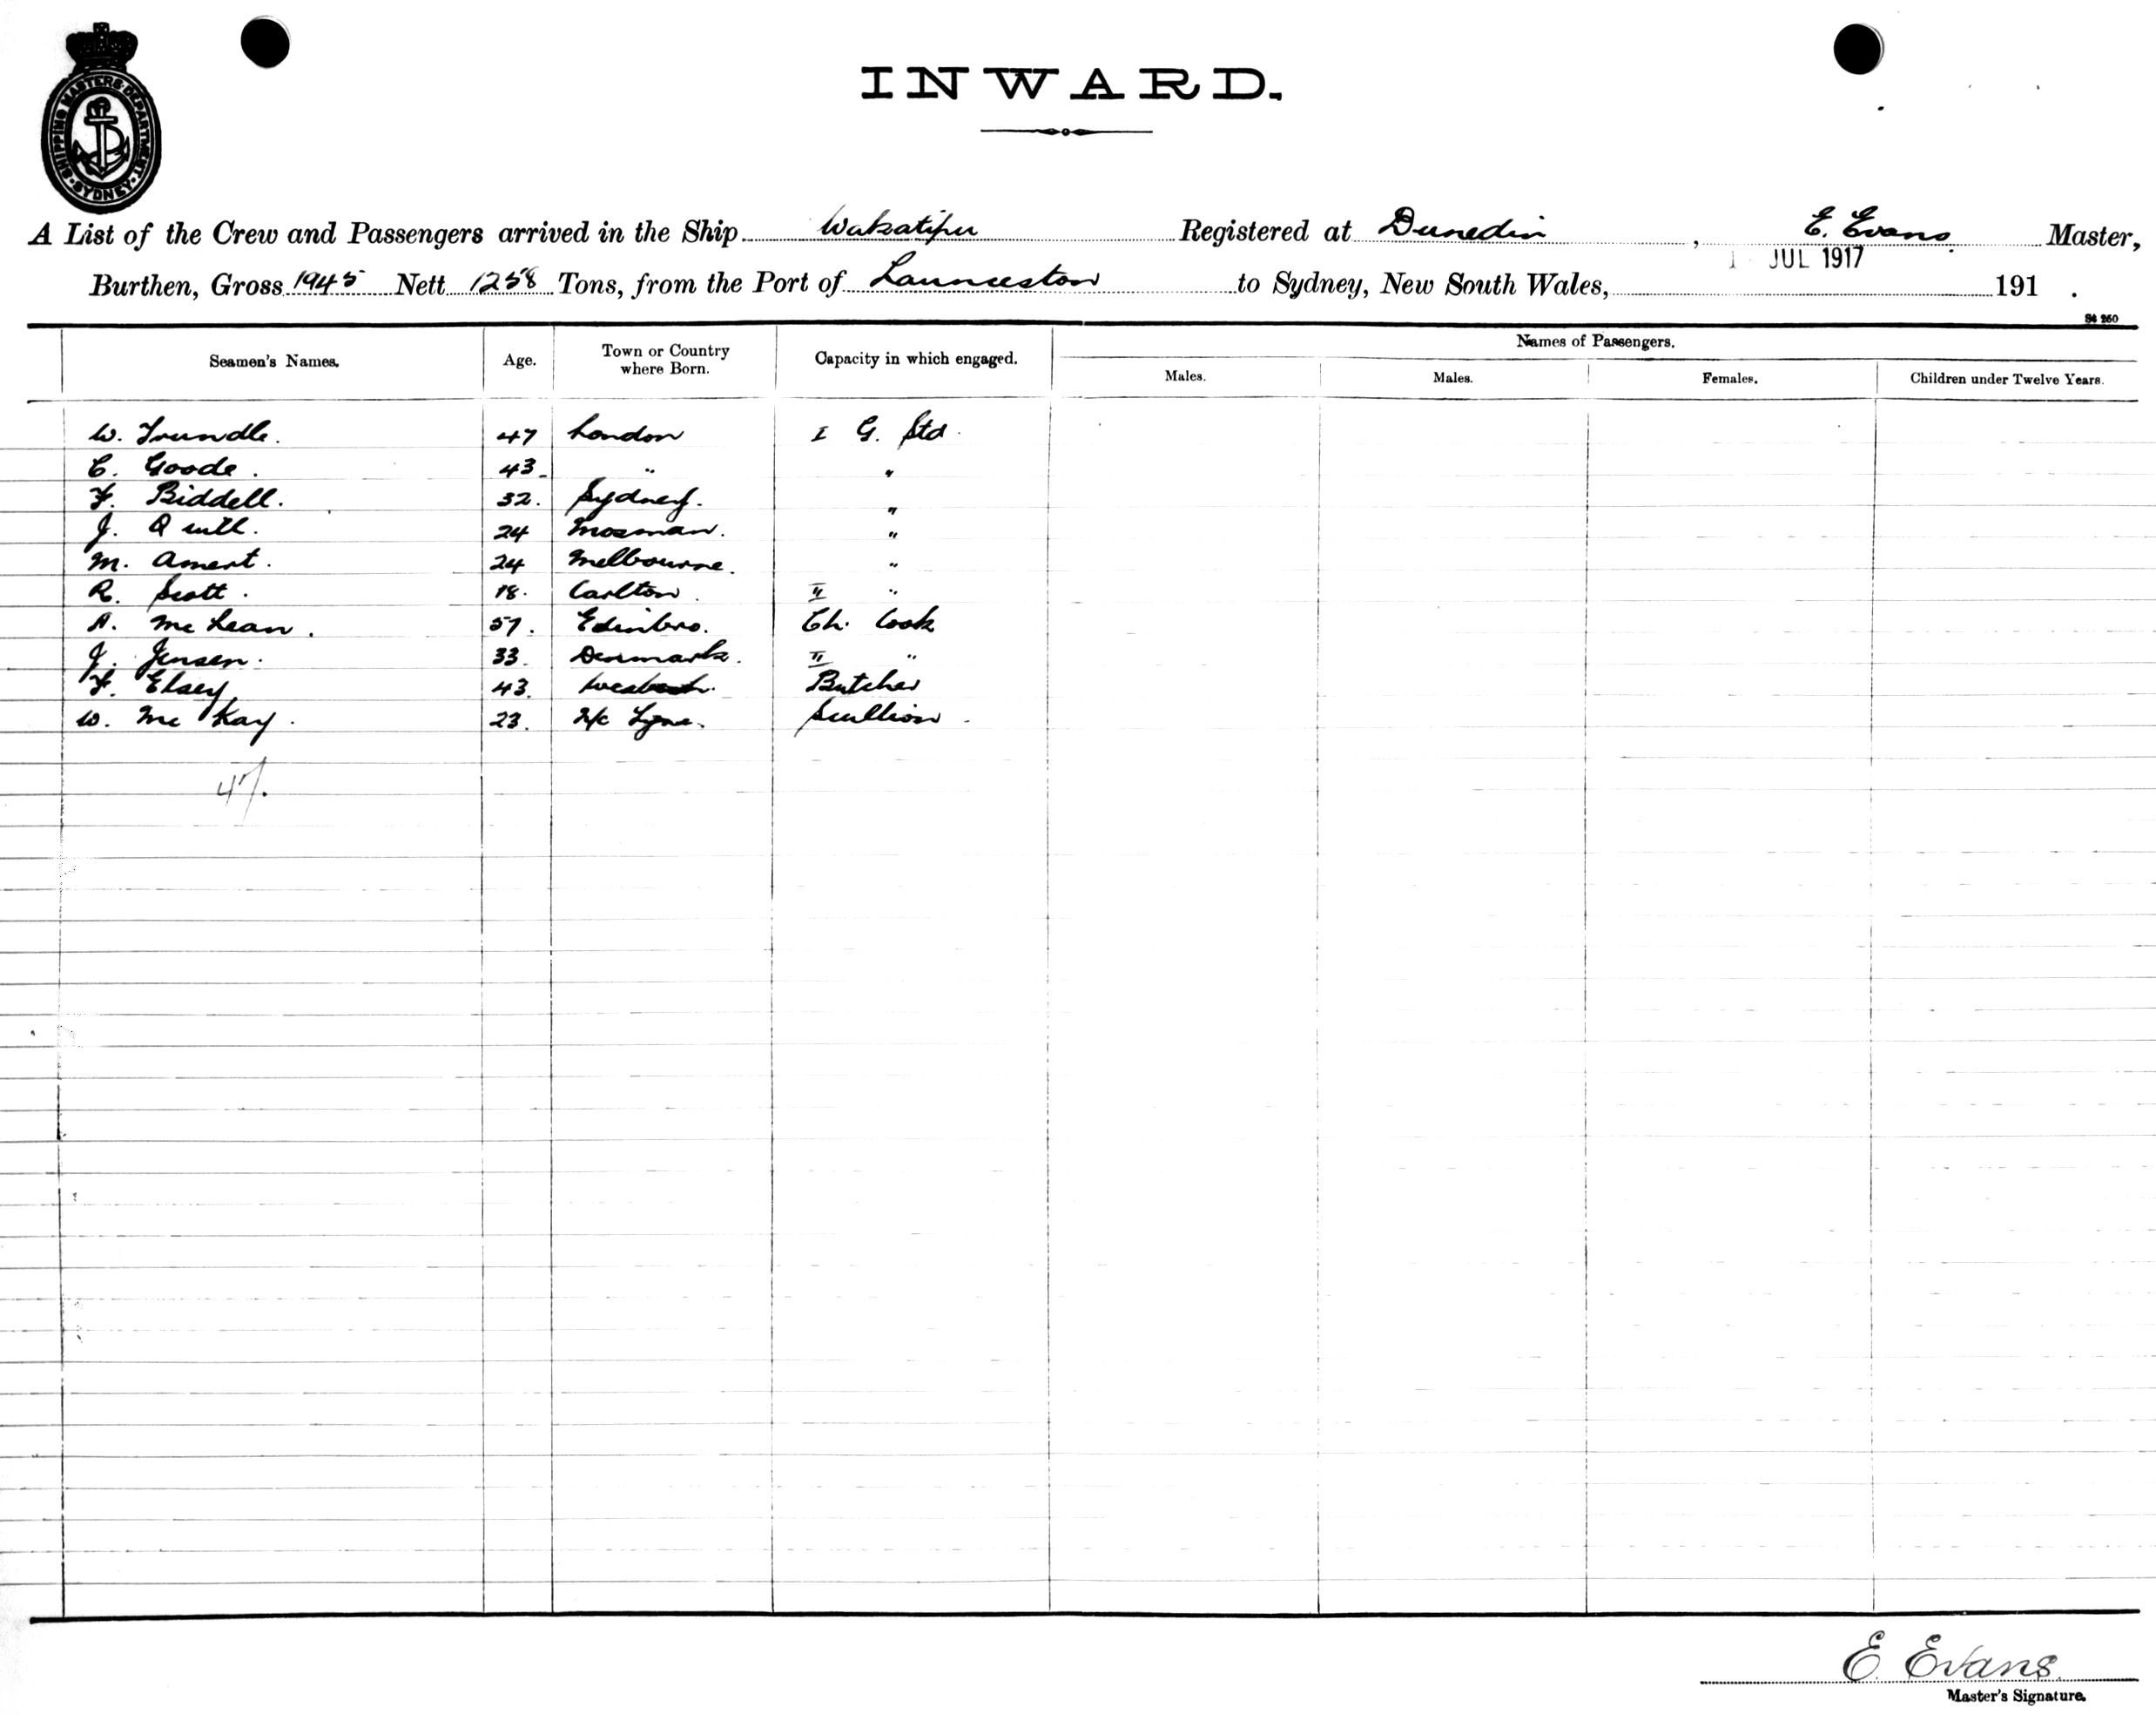 SHIPPING MASTERS DEPARTMENT. SYDNEY.
INWARD.
A List of the Crew and Passengers arrived in the Ship Wakatipu Registered at Dunedin, E. Evans. Master,
1 JUL 1917
Burthen, Gross 1945 Nett 1258 Tons, from the Port of Launceston to Sydney, New South Wales, 191 .
Names of Passengers.
Seamen's Names. Age. Town or Country where Born. Capacity in which engaged. Males. Males. Females. Children under Twelve Years.
W. Trundle. 47 London I G. Std.
C. Goode. 43 " "
F. Biddell. 32. Sydney. "
J. 24 Mosman. "
M. Ament. 24 Melbourne. "
R. Scott. 18. Carlton. II "
A. McLean. 57. Edinbro. Ch. Cook
J. Jensen. 33. Denmark. II "
F. Elsey 43. Butcher
W. McKay. 23. N/c Tyne. Scullion
47.
E. Evans
Master's Signature.